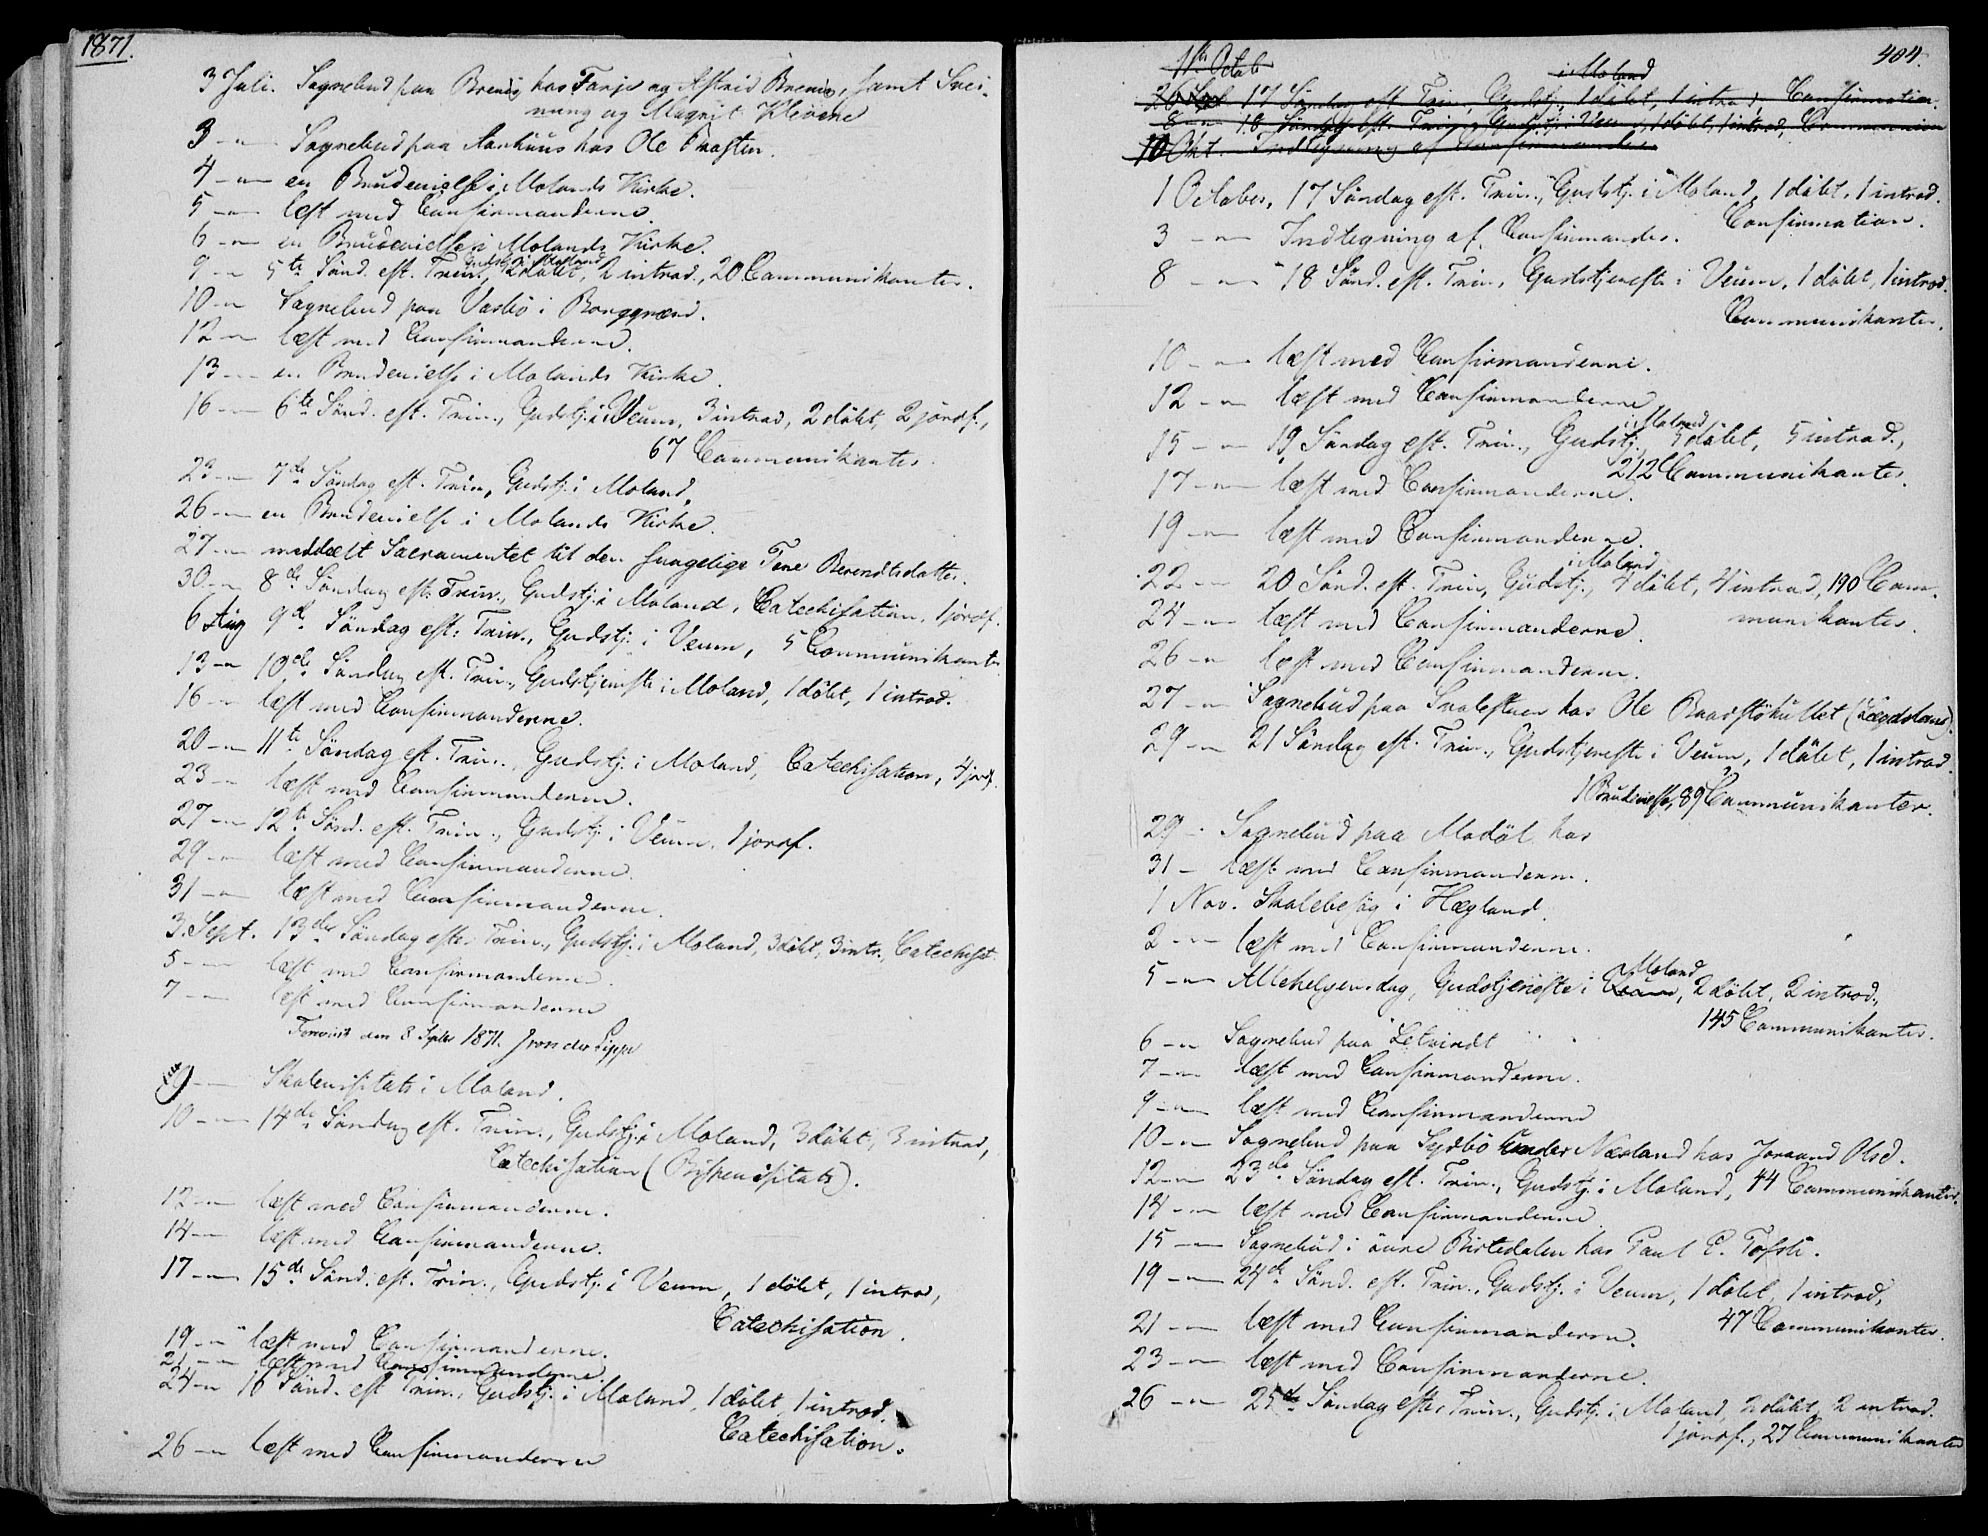 1871.
3 Juli. Sognebud paa Brenis hos Tarje og Astrid Brenis, samt Svei-
nung og Magnit Klevene
3 — Sognebud paa Aanhuus hos Ole Krosten.
4 — en Brudevielse i Molands Kirke.
5 — læst med Confirmanderne.
6 — en Brudevielse i Molands Kirke.
9 — 5te Sönd. eft. Trin., Gudstj. i Moland, 2 döbt, 2 introd., 20 Communikanter.
10 — Sognebud paa Vasbö i Borggrænd.
12 — læst med Confirmanderne.
13 — en Brudevielse i Molands Kirke.
16 — 6te Sönd. eft. Trin., Gudstj. i Veum, 3 introd, 2 döbt, 2 jordf.,
67 Communikanter.
23 — 7de Söndag eft. Trin, Gudstj. i Moland,
26 — en Brudevielse i Molands Kirke.
27 — meddelt Sacramentet til den sengelige Tone Berendtsdatter.
30 — 8de Söndag eft. Trin., Gudstj. i Moland, Catechisation, 1 jordf.
6 Aug 9de Söndag eft. Trin., Gudstj. i Veum, 5 Communikanter
13 — 10de Söndag eft. Trin., Gudstjeneste i Moland, 1 döbt, 1 introd.
16 — læst med Confirmanderne.
20 — 11te Söndag eft. Trin., Gudstj. i Moland, Catechisation, 4 jordf.
23 — læst med Confirmanderne.
27 — 12te Sönd. eft. Trin., Gudstj. i Veum, 1 jordf.
29 — læst med Confirmanderne.
31 — læst med Confirmanderne.
3. Sept. 13de Söndag efter Trin., Gudstj. i Moland, 3 döbt, 3 intr., Catechisat.
5 — læst med Confirmanderne.
7 — læst med Confirmanderne
Forevist den 8 Septbr 1871. J von der Lippe
9 — Skolevisitats i Moland.
10 — 14de Söndag eft. Trin., Gudstj. i Moland, 3 döbt, 3 introd,
Catechisation (Bispevisitats).
12 — læst med Confirmanderne.
14 — læst med Confirmanderne.
17 — 15de Sönd. eft. Trin., Gudstj. i Veum, 1 döbt, 1 introd,
Catechisation.
19 — læst med Confirmanderne.
21 — læst med Confirmanderne.
24 — 16 Sönd. eft Trin., Gudstj. i Moland, 1 döbt, 1 introd.
Catechisation.
26 — læst med Confirmanderne
404.
1ste Octob
i Moland
17 Söndag eft. Trin, Gudstj., 1 döbt, 1 introd, Confirmation.
8 — 18 Söndag eft. Trin., Gudstj. i Veum, 1 döbt, 1 introd, Communion
10 Okt. Indtegning af Confirmander
1 October, 17 Söndag eft. Trin., Gudstj. i Moland, 1 döbt, 1 introd.
Confirmation.
3 — Indtegning af Confirmander.
8 — 18 Sönd. eft. Trin, Gudstjeneste i Veum, 1 döbt, 1 introd.
Communikanter.
10 — læst med Confirmanderne.
12 — læst med Confirmanderne
15 — 19 Söndag eft. Trin., Gudstj. i Moland, 5 döbt, 5 introd.,
212 Communikanter.
17 — læst med Confirmanderne.
19 — læst med Confirmanderne.
22 — 20 Sönd. eft. Trin, Gudstj. i Moland, 4 döbt, 4 introd, 190 Com-
munikanter.
24 — læst med Confirmanderne.
26 — læst med Confirmanderne.
27 — Sognebud paa Skolestuen hos Ole Baarstökullet (Lægdslem).
29 — 21 Söndag eft. Trin., Gudstjeneste i Veum, 1 döbt, 1 introd.
1 Brudevielse, 89 Communikanter.
29 — Sognebud paa Modöl hos
31 — læst med Confirmanderne.
1 Nov. Skolebesög i Hægland.
2 — læst med Confirmanderne.
5 — Allehelgensdag, Gudstjeneste i Veum Moland, 2 döbt, 2 introd,
145 Communikanter.
6 — Sognebud paa Letvindt
7 — læst med Confirmanderne.
9 — læst med Confirmanderne
10 — Sognebud paa Sydbö under Næsland hos Joraand Olsd.
12 — 23de Söndag eft. Trin., Gudstj. i Moland, 44 Communikanter.
14 — læst med Confirmanderne
15 — Sognebud i övre Birtedalen hos Paul C. Tofsli.
19 — 24de Sönd. eft. Trin., Gudstj. i Veum, 1 döbt, 1 introd,
47 Communikanter.
21 — læst med Confirmanderne.
23 — læst med Confirmanderne.
26 — 25de Söndag efter Trin., Gudstj. i Moland, 2 döbt, 2 introd.
1 jordf., 27 Communikanter